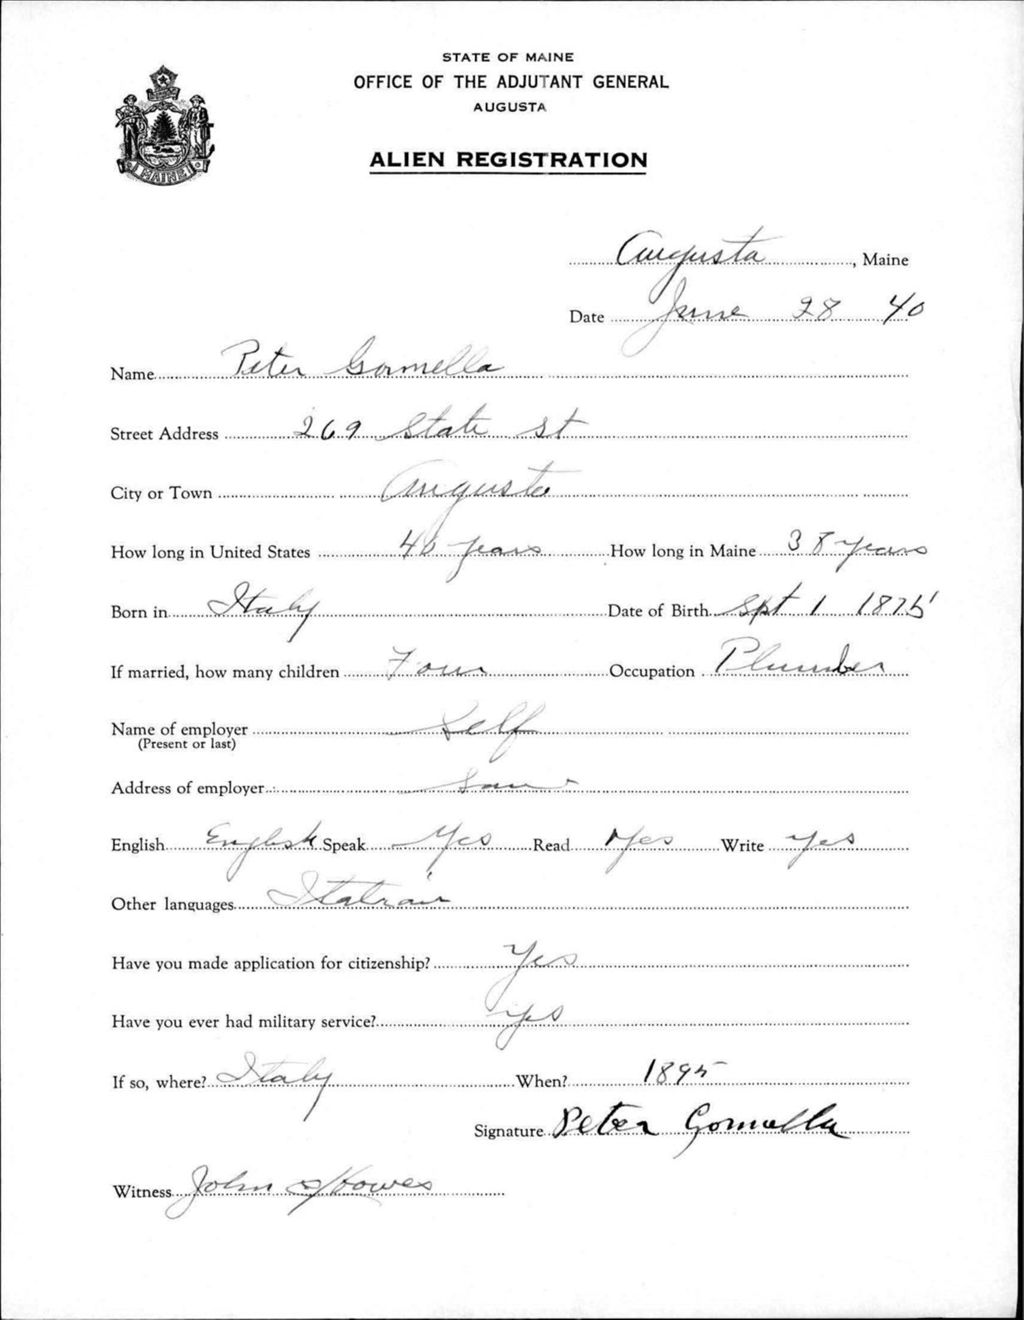 STATE OF MAINE
OFFICE OF THE ADJUTANT GENERAL
AUGUSTA
ALIEN REGISTRATION
MAINE
Augusta, Maine
Date June 28 40
Name Peter Gomella
Street Address 269 State St
City or Town Augusta
How long in United States 40 years How long in Maine 38 years
Born in Italy Date of Birth Spt 1 1875
If married, how many children Four Occupation Plumber
Name of employer Self
(Present or last)
Address of employer
English English Speak Yes Read Yes Write Yes
Other languages Italian
Have you made application for citizenship? Yes
Have you ever had military service? yes
If so, where? Italy When? 1895
Signature Peter Gomella
Witness John Howes